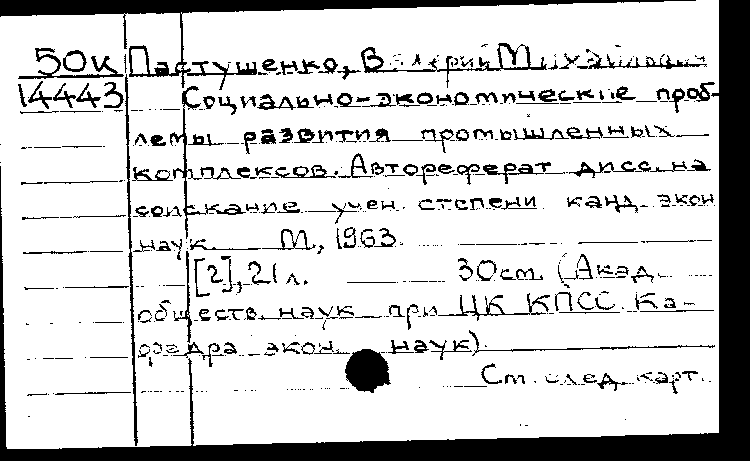 50к Пастушенко, Валерий Михайлович
14443 Социально-экономические проб-
лемы развития промышленных
комплексов. Автореферат дисс. на
соискание учен. степени канд. экон
наук. М., 1963.
[2], 21 л. 30см. (Акад.
обществ. наук при ЦК КПСС. Ка-
федра экон. наук).
См. след. карт.